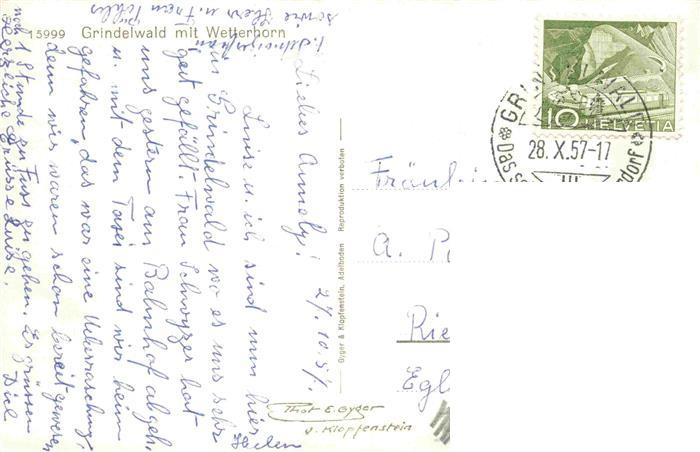 15999 Grindelwald mit Wetterhorn
27.10.57.
Liebes Annely!
Luise u. ich sind nun hier
in Grindelwald wo es uns sehr
gut gefällt. Frau Schwyzer hat
uns gestern am Bahnhof abgeh.
u. mit dem Taxi sind wir heim
gefahren, das war eine Ueberraschung,
denn wir waren schon bereit gewesen
noch 1 Stunde zu Fuss zu gehen. Es grüssen
Herzliche Grüsse Luise. Dich
Helen
sowie Herr u. Frau
Gyger & Klopfenstein, Adelboden Reproduktion verboten
Phot E. Gyger
u. Klopfenstein
10 HELVETIA
28. X. 57-17
III
Das
dorf
Fräulein
A. P
Rie
Egl